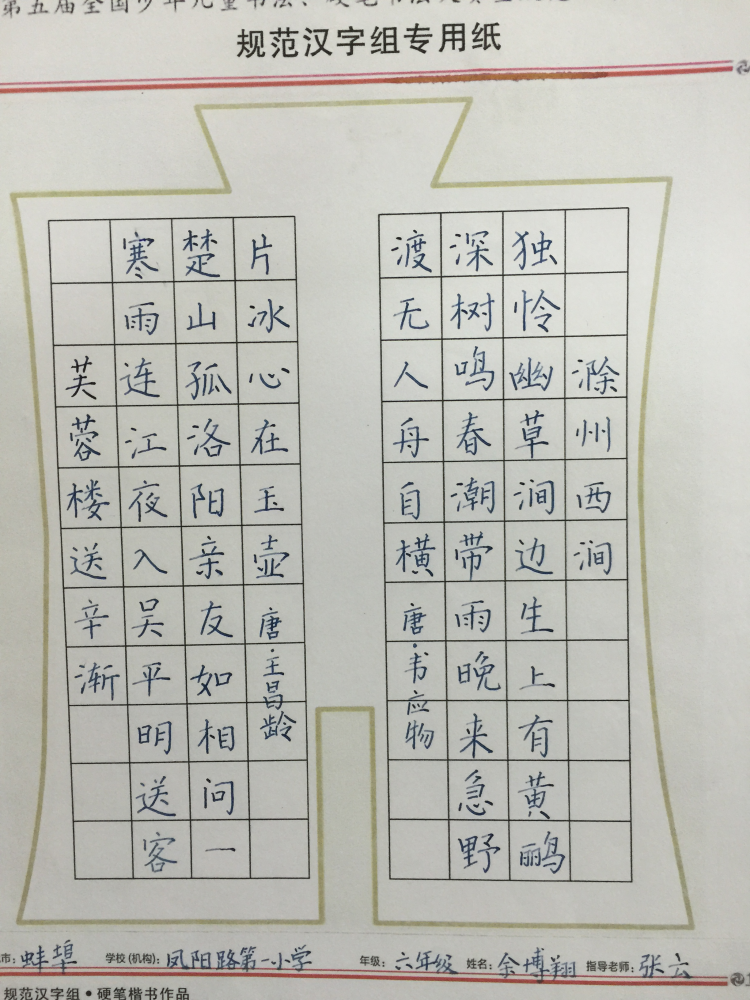 第五届全国少年儿童书法、硬笔书法大赛
规范汉字组专用纸
滁州西涧
独怜幽草涧边生上有黄鹂
深树鸣春潮带雨晚来急野
渡无人舟自横唐·韦应物
芙蓉楼送辛渐
寒雨连江夜入吴平明送客
楚山孤洛阳亲友如相问一
片冰心在玉壶唐·王昌龄
市：蚌埠 学校(机构)：凤阳路第一小学 年级：六年级 姓名：余博翔 指导老师：张云
规范汉字组·硬笔楷书作品